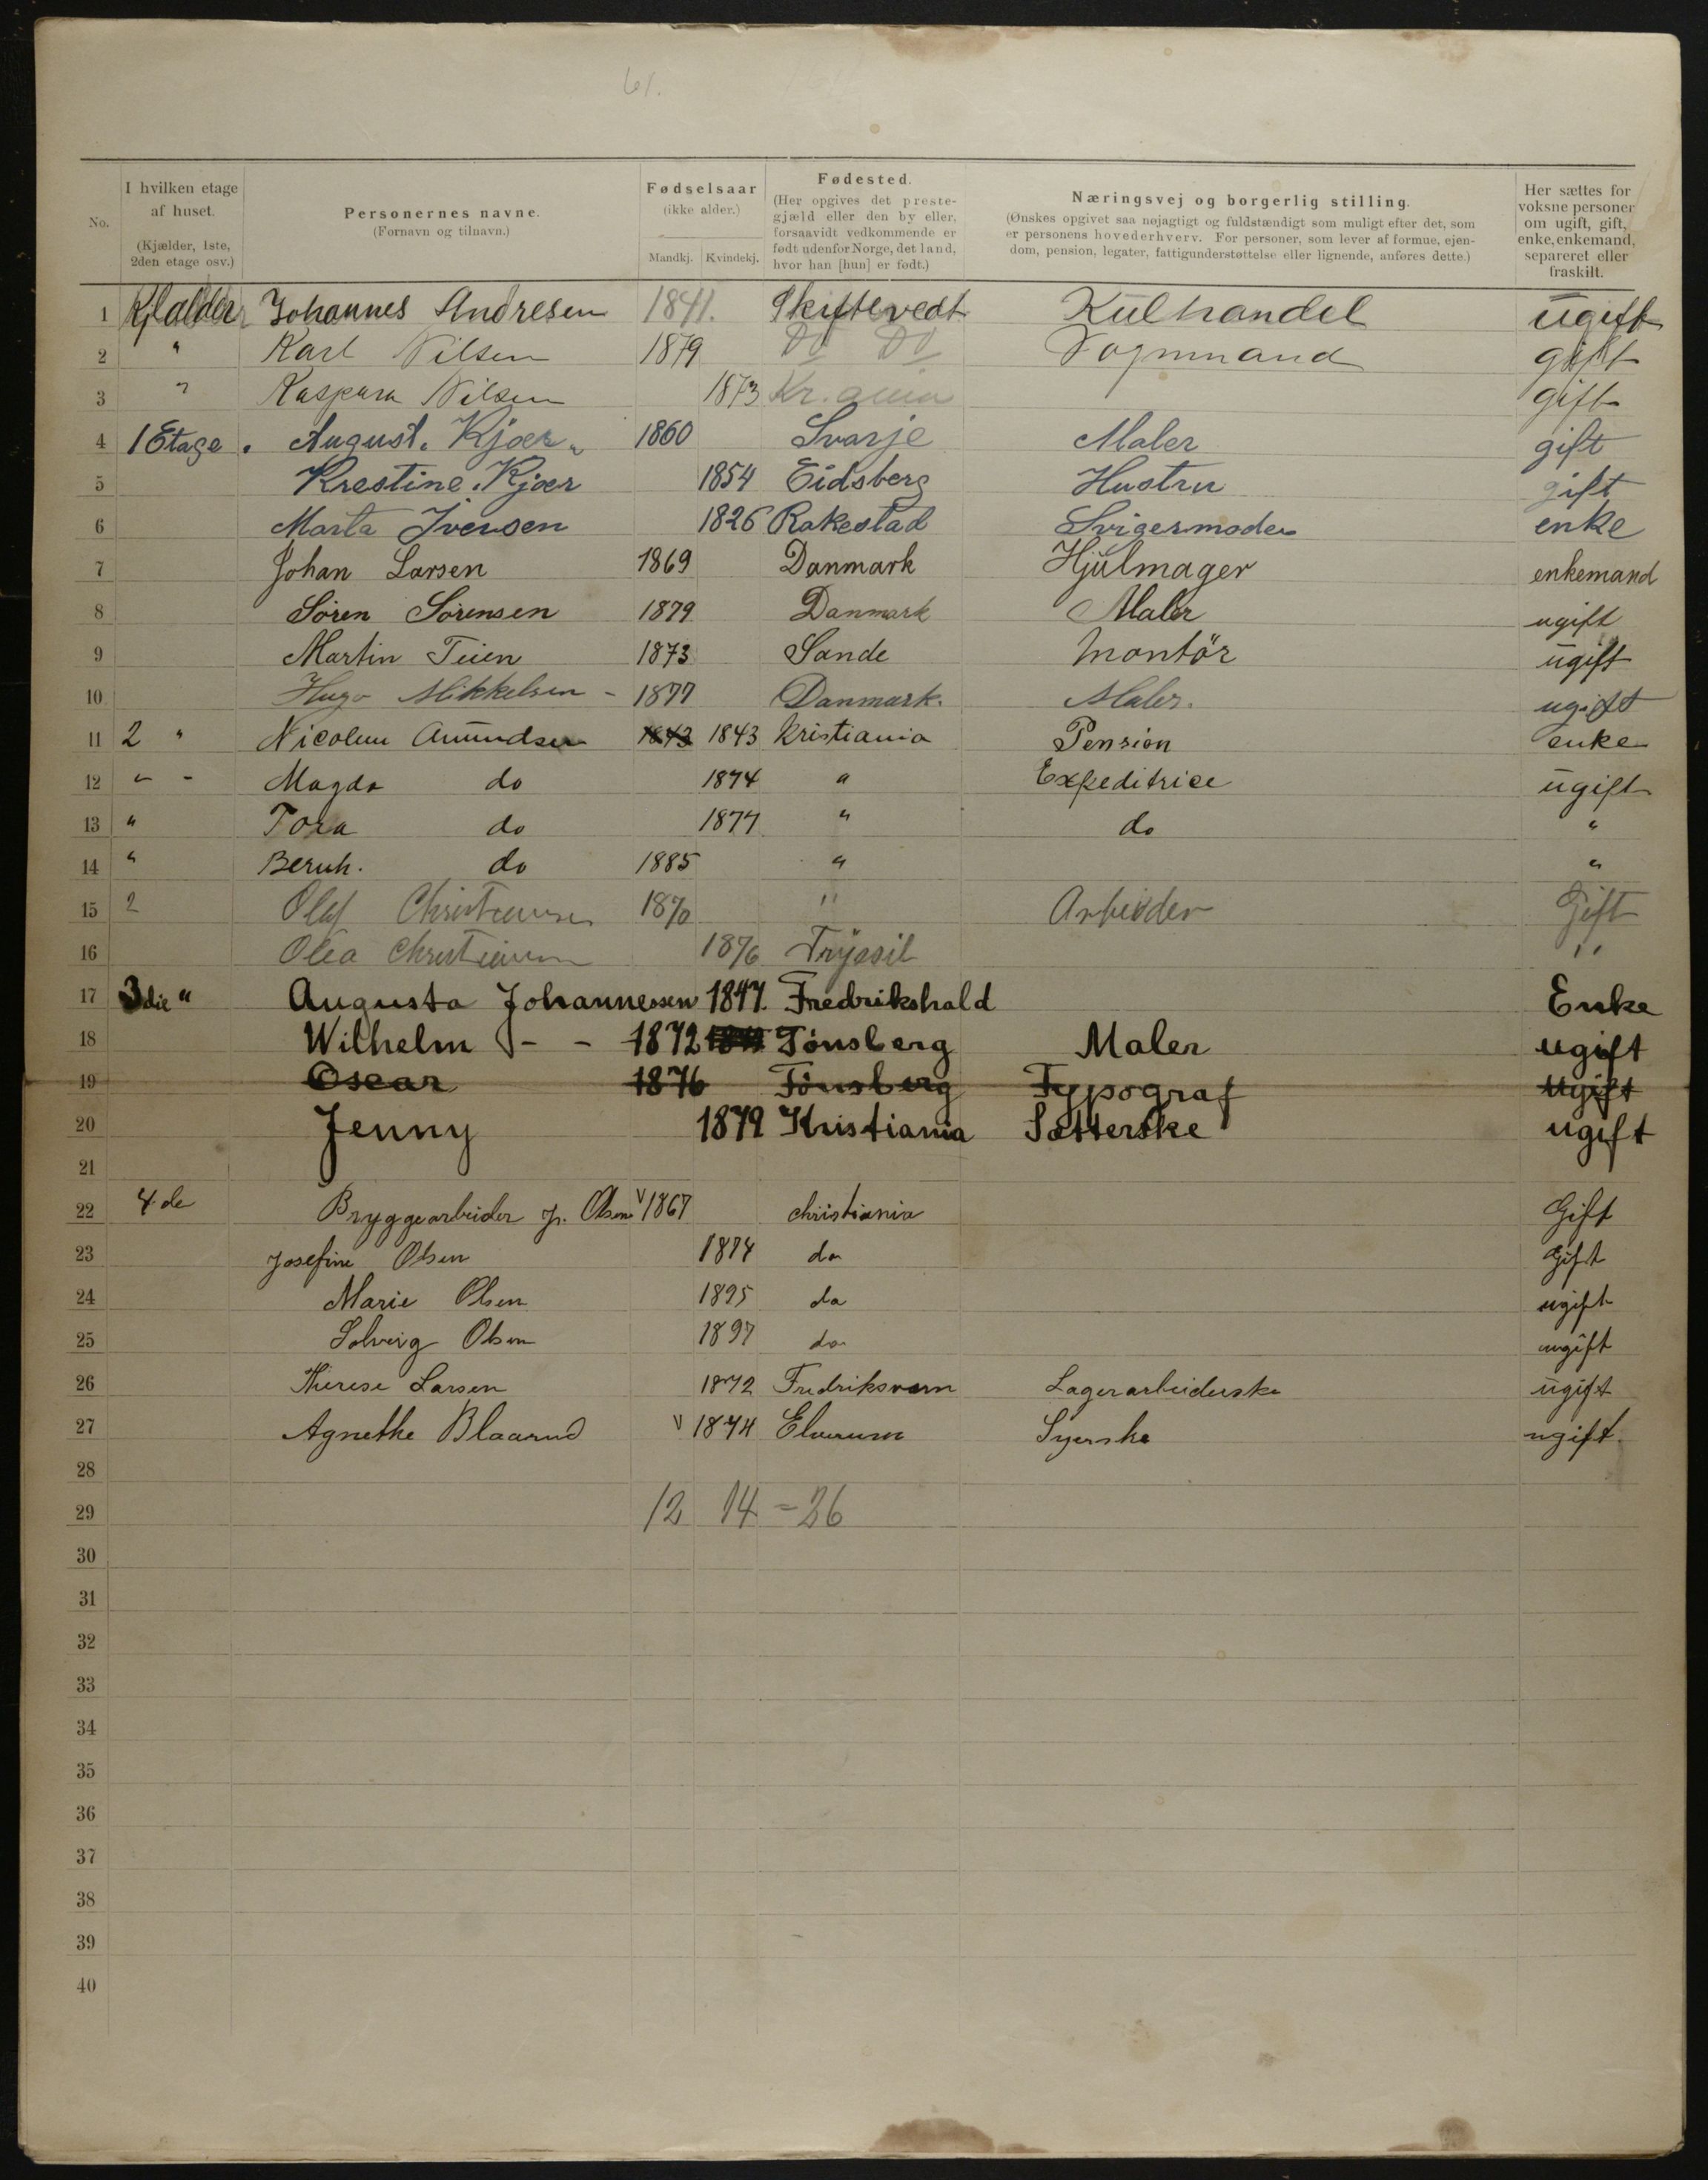 61.
No.
I hvilken etage af huset.
(Kjælder, 1ste, 2den etage osv.)
Personernes navne.
(Fornavn og tilnavn.)
Fødselsaar
(ikke alder.)
Mandkj. Kvindekj.
Fødested.
(Her opgives det præste-
gjæld eller den by eller,
forsaavidt vedkommende er
født udenfor Norge, det land,
hvor han [hun] er født.)
Næringsvej og borgerlig stilling.
(Ønskes opgivet saa nøjagtigt og fuldstændigt som muligt efter det, som
er personens hovederhverv. For personer, som lever af formue, ejen-
dom, pension, legater, fattigunderstøttelse eller lignende, anføres dette.)
Her sættes for
voksne personer
om ugift, gift,
enke, enkemand,
separeret eller
fraskilt.
1 Kjælder Johannes Andresen 1841. Skiftevedt Kulhandel ugift
2 " Karl Nilsen 1879 Do Do Vognmand gift
3 " Kaspara Nilsen 1873 Kr.ania gift
4 1 Etage . August. Kjær 1860 Svarje Maler gift
5 Krestine. Kjær 1854 Eidsberg Hustru gift
6 Marta Iversen 1826 Rakestad Svigermoder enke
7 Johan Larsen 1869 Danmark Hjulmager enkemand
8 Sören Sörensen 1879 Danmark Maler ugift
9 Martin Teien 1873 Sande Montör ugift
10 Hugo Mikkelsen - 1877 Danmark. Maler. ugift
11 2 " Nicoline Amundsen 1843 1843 Kristiania Pension enke
12 " - Magda do 1874 " Expeditrice ugift
13 " Tora do 1877 " do "
14 " Bernh. do 1885 " "
15 2 Olaf Christiansen 1870 " Arbeider Gift
16 Olea Christiansen 1876 Trysil "
17 3die " Augusta Johannessen 1847. Fredrikshald Enke
18 Wilhelm - - 1872 Tönsberg Maler ugift
19 Oscar 1876 Tönsberg Typograf ugift
20 Jenny 1879 Kristiania Sætterske ugift
21
22 4.de Bryggearbeider J. Olsen 1867 christiania Gift
23 Josefine Olsen 1874 do Gift
24 Marie Olsen 1895 do ugift
25 Solveig Olsen 1897 do ugift
26 Therese Larsen 1872 Fredriksværn Lagerarbeiderske ugift
27 Agnethe Blaarud 1874 Elverum Syerske ugift.
28
29 12 14 = 26
30
31
32
33
34
35
36
37
38
39
40